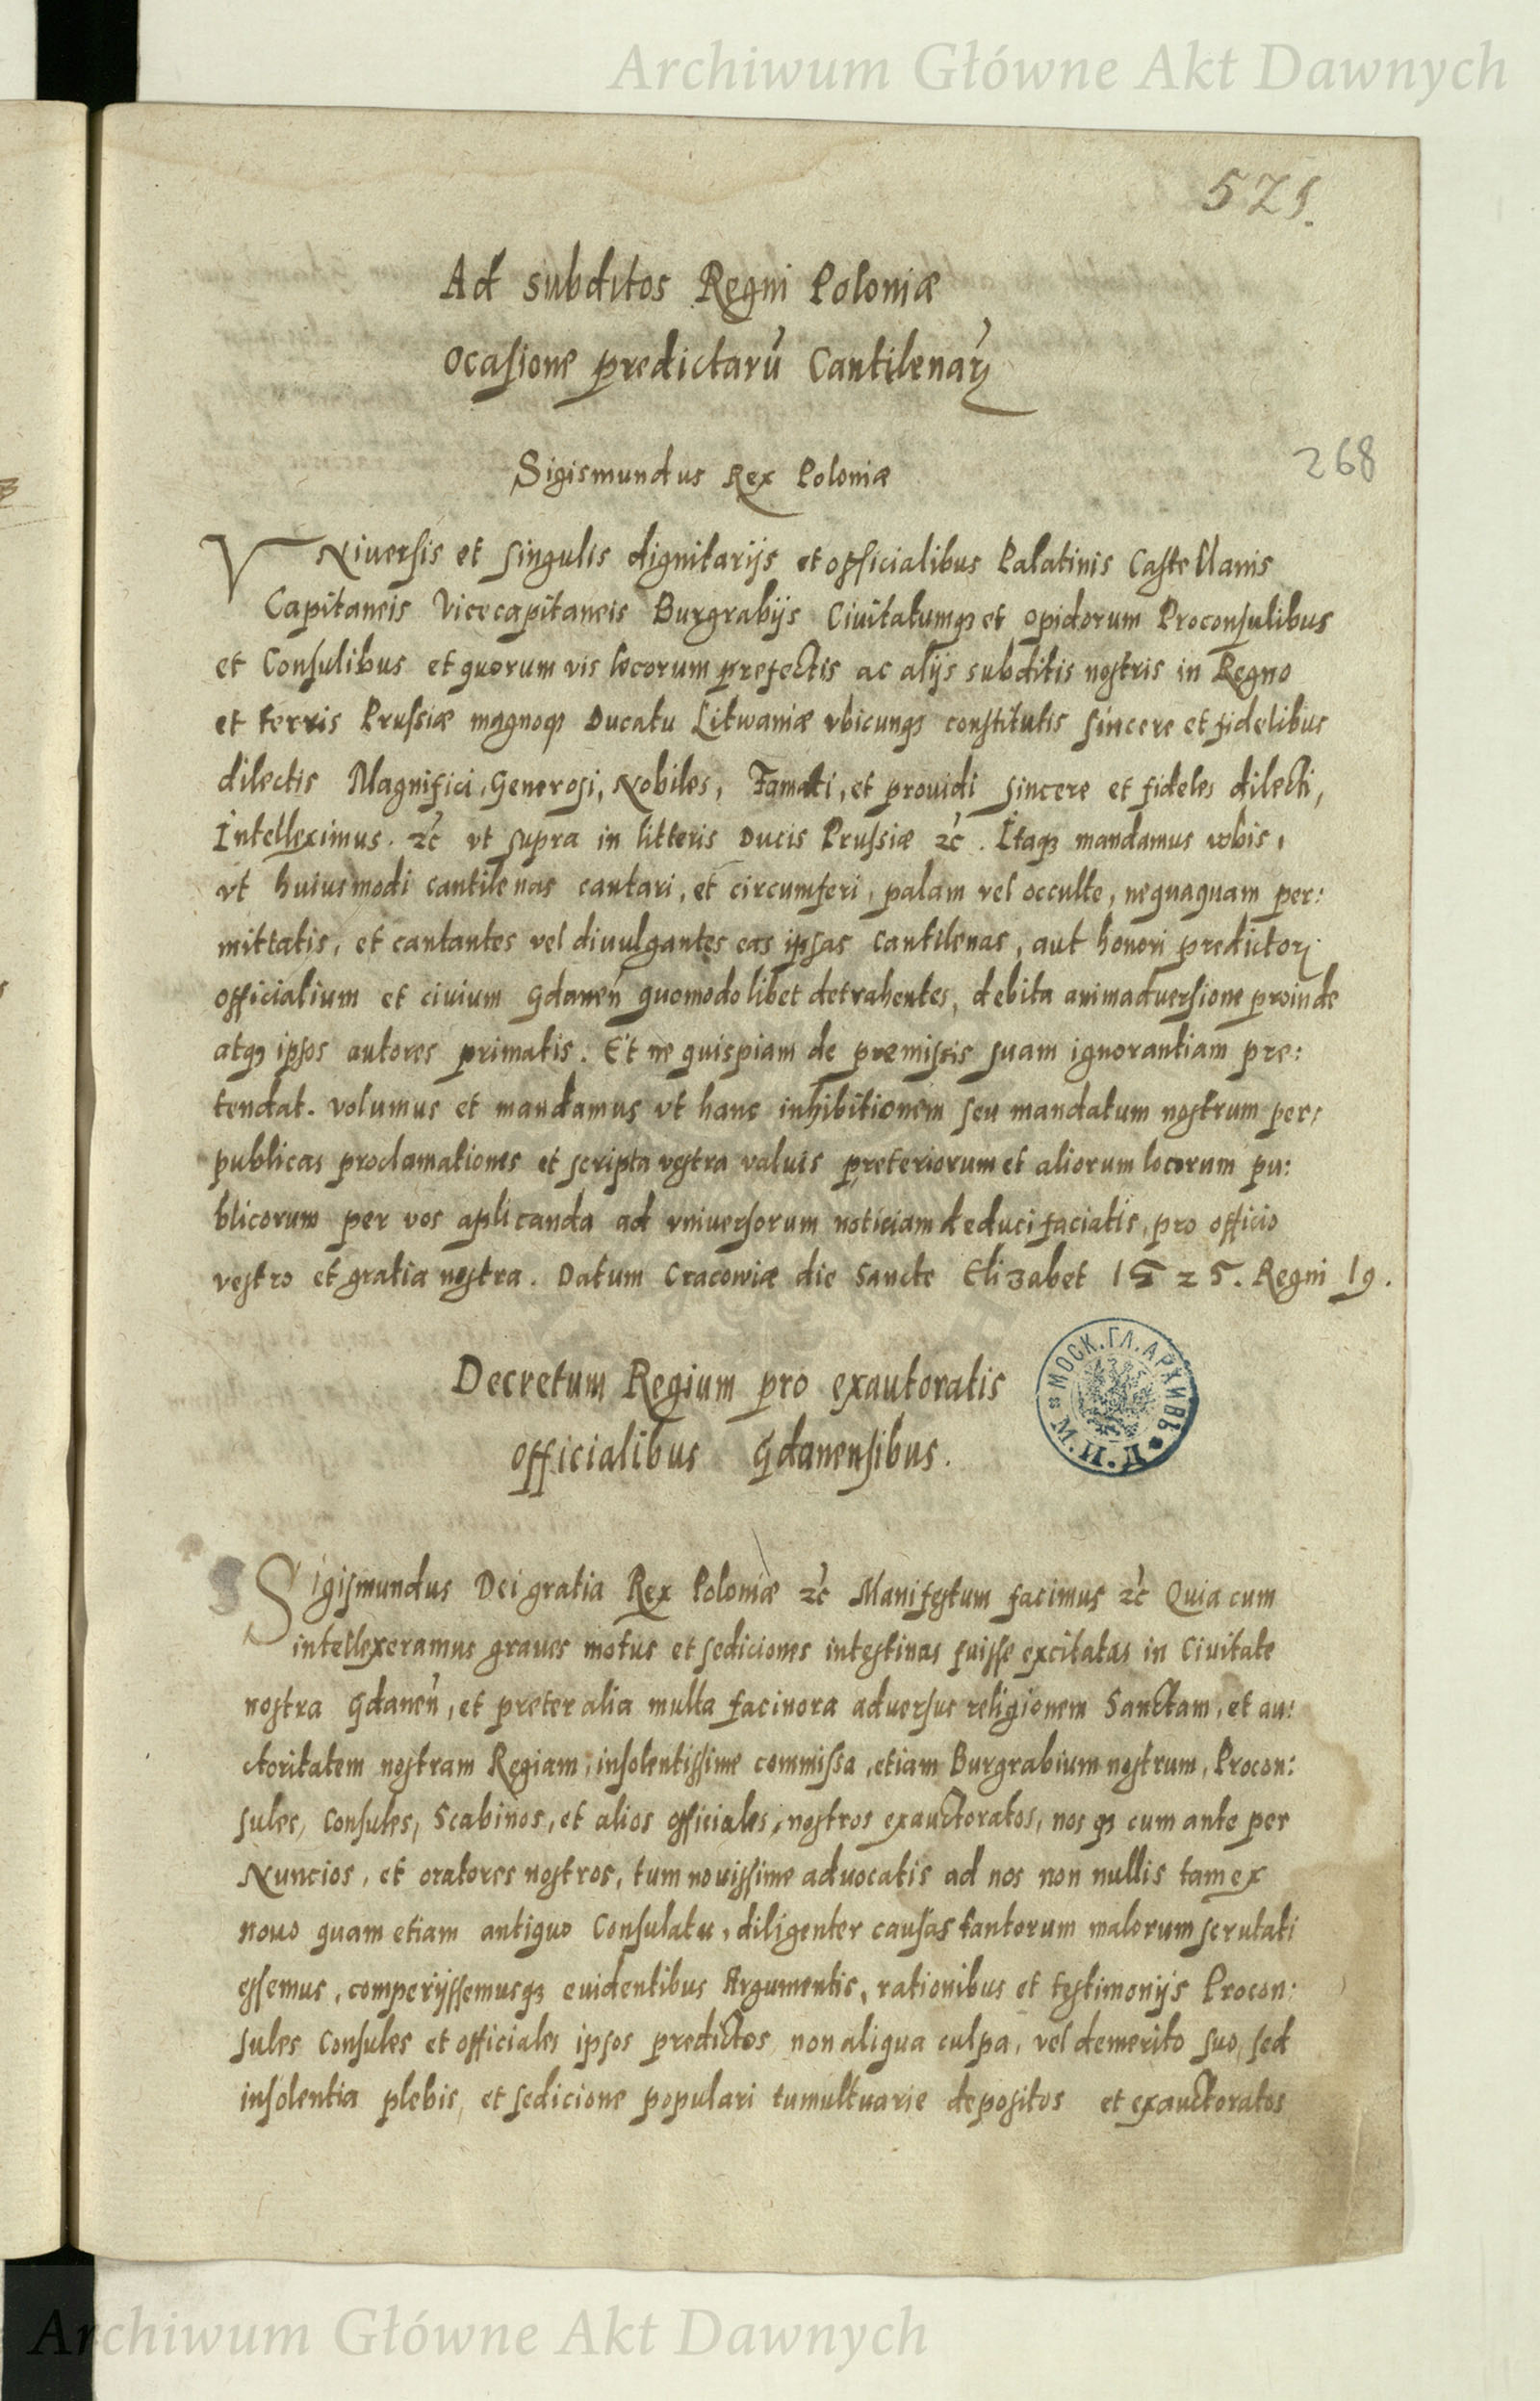 Archiwum Główne Akt Dawnych
521.
Ad subditos Regni Poloniæ
ocasione predictarū Cantilenarꝝ
Sigismundus Rex Poloniæ
268
VNiuersis et singulis dignitarijs et officialibus Palatinis Castellanis
Capitaneis Vicecapitaneis Burgrabijs Ciuitatumqꝫ et opidorum Proconsulibus
et Consulibus et quorum vis locorum prefectis ac alijs subditis nostris in Regno
et terris Prussiæ magnoqꝫ Ducatu Litwaniæ vbicunqꝫ constitutis sincere et fidelibus
dilectis Magnifici, Generosi, Nobiles, Famati, et prouidi sincere et fideles dilecti,
Intelleximus. ꝛc̃ vt supra in litteris Ducis Prussiæ ꝛc̃. Itaqꝫ mandamus vobis,
vt huiusmodi cantilenas cantari, et circumferi, palam vel occulte, nequaquam per:
mittatis, et cantantes vel diuulgantes eas ipsas cantilenas, aut honori predictorꝝ
officialium et ciuium Gdaneñ quomodolibet detrahentes, debita animaduersione proinde
atqꝫ ipsos autores primatis. Et ne quispiam de premissis suam ignorantiam pre:
tendat. volumus et mandamus vt hanc inhibitionem seu mandatum nostrum per:
publicas proclamationes et scripta vestra valuis preteriorum et aliorum locorum pu:
blicorum per vos aplicanda ad vniuersorum noticiam deduci faciatis, pro officio
vestro et gratia nostra. Datum Cracowiæ die Sancte Elizabet 1525. Regni 19.
Decretum Regium pro exautoratis
officialibus Gdanensibus.
МОСК. ГЛ. АРХИВЪ М. И. Д.
Sigismundus Dei gratia Rex Poloniæ ꝛc̃ Manifestum facimus ꝛc̃ Quia cum
intellexeramus graues motus et sediciones intestinas fuisse excitatas in Ciuitate
nostra Gdaneñ, et preter alia multa facinora aduersus religionem Sanctam, et au:
ctoritatem nostram Regiam, insolentissime commissa, etiam Burgrabium nostrum, Procon:
sules, Consules, Scabinos, et alios officiales, nostros exauctoratos, nos qꝫ cum ante per
Nuncios, et oratores nostros, tum nouissime aduocatis ad nos non nullis tam ex
nouo quam etiam antiquo Consulatu, diligenter causas tantorum malorum scrutati
essemus, comperijssemusqꝫ euidentibus Argumentis, rationibus et testimonijs Procon:
sules Consules et officiales ipsos predictos non aliqua culpa, vel demerito suo, sed
insolentia plebis, et sedicione populari tumultuarie depositos et exauctoratos
Archiwum Główne Akt Dawnych